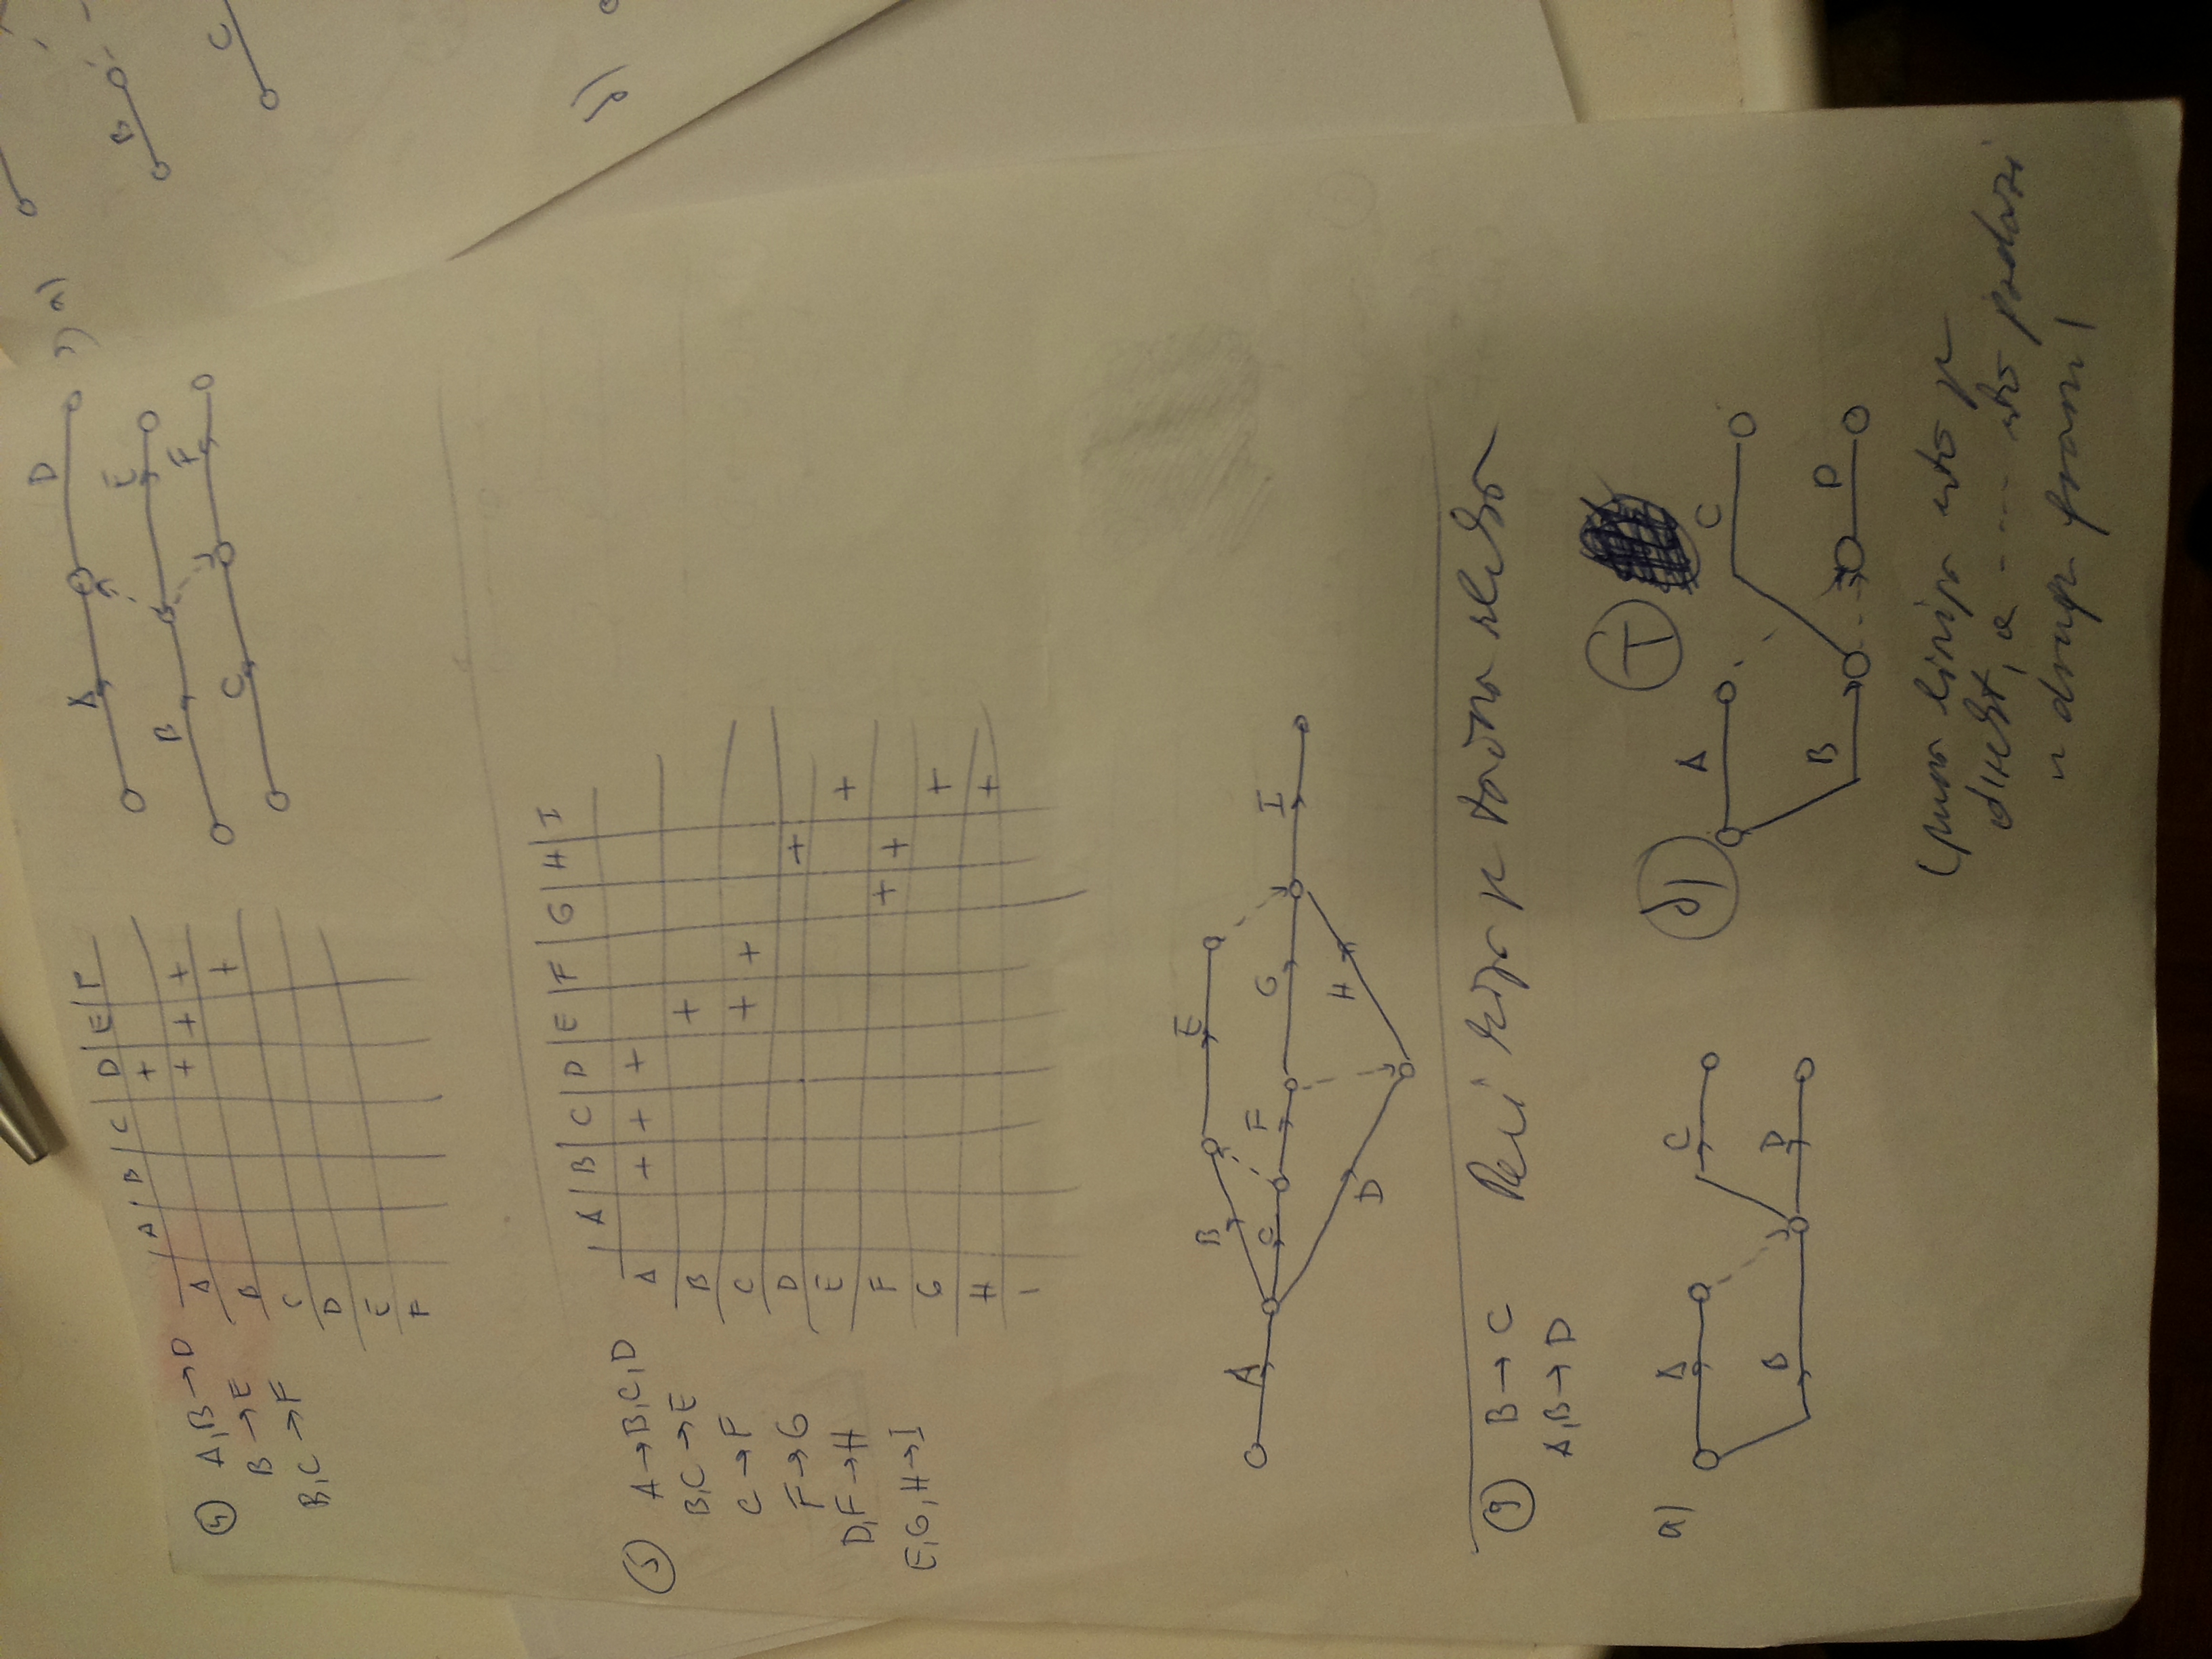 ④ A,B→D
B→E
B,C→F
A B C D E F
A +
B + + +
C +
D
E
F
A D
B E
C F
a)
B
C
б)
⑤ A→B,C,D
B,C→E
C→F
F→G
D,F→H
E,G,H→I
A B C D E F G H I
A + + +
B +
C + +
D +
E +
F + +
G +
H +
I
B E
A C F G I
D H
⑨ B→C
A,B→D
Reci koja je tačna slika
a) A C
B D
б) T
A C
B D
(puna linija što je
direkt, a ---- što prelazi
u druge grane)